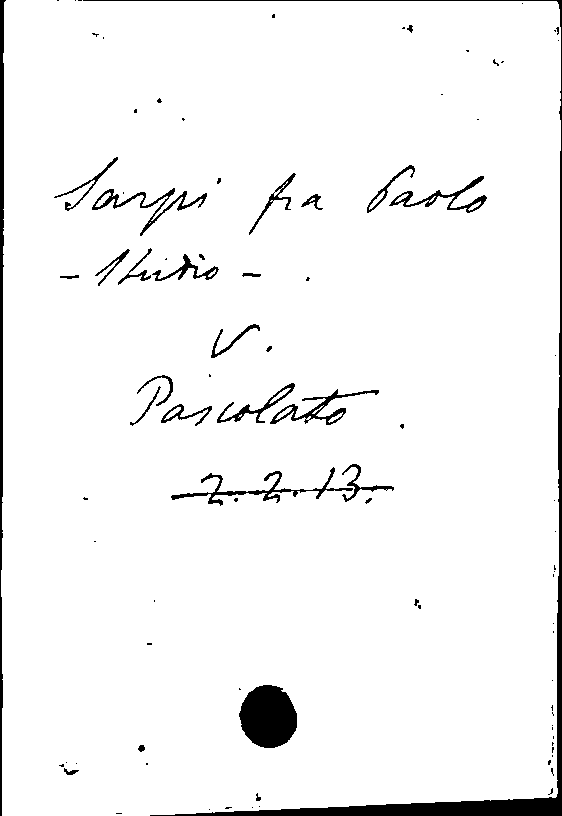 Sarpi fra Paolo
- Studio - .
V.
Pascolato .
2.2.13.